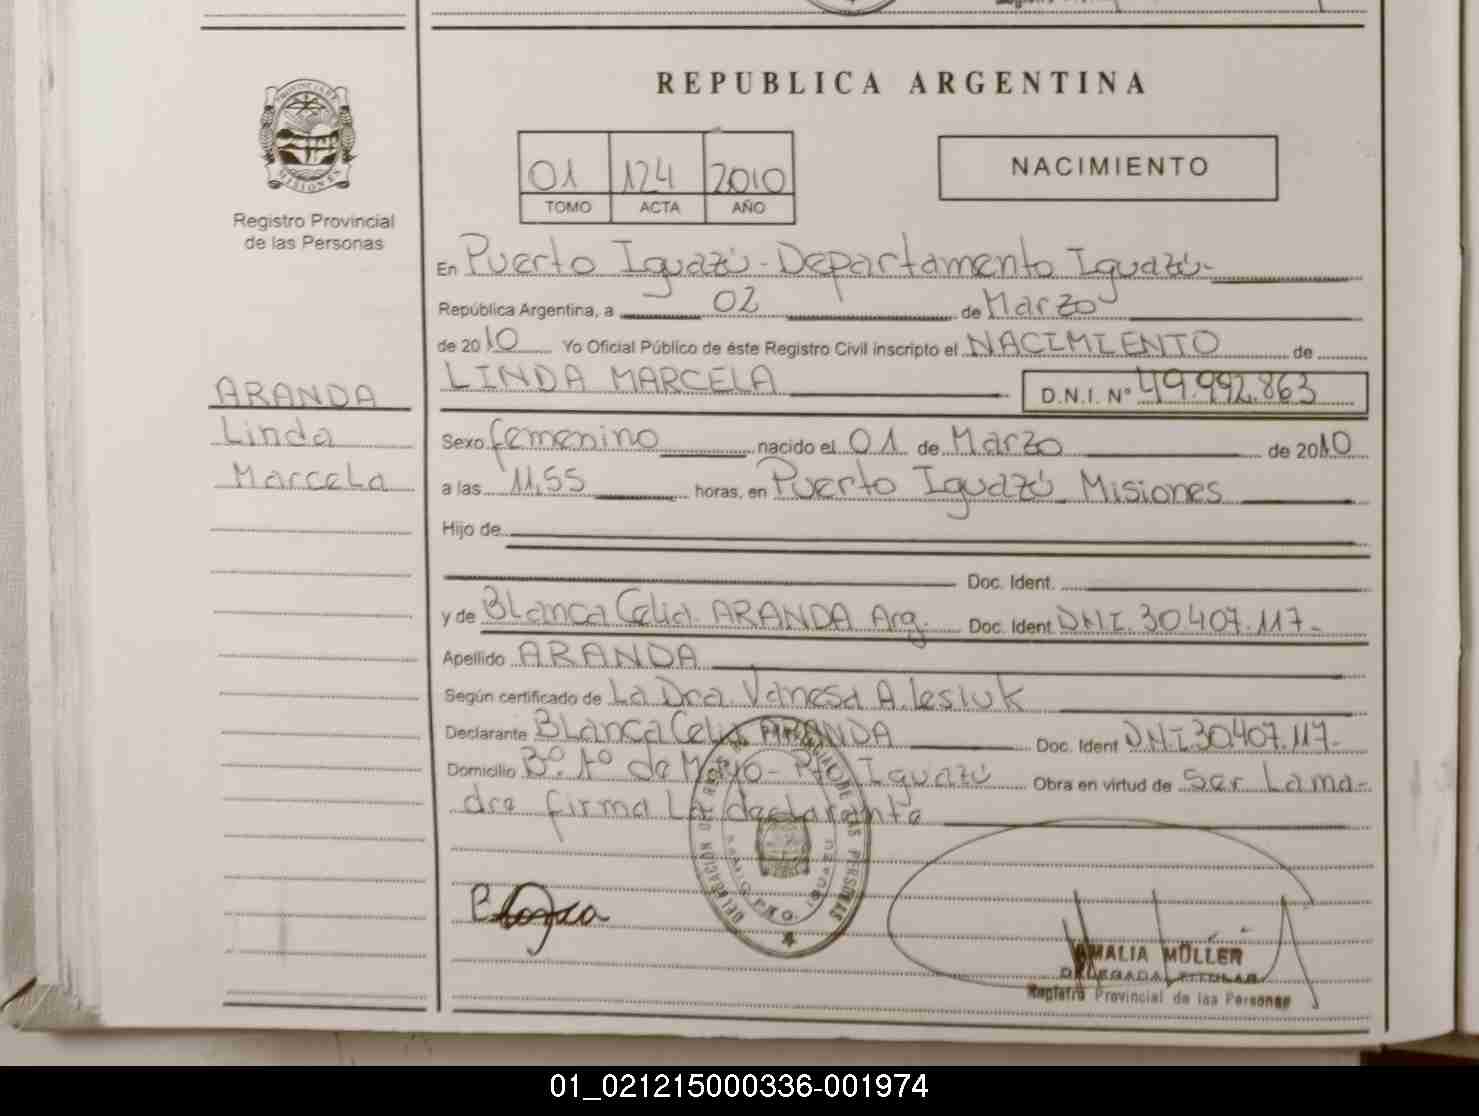 REPUBLICA ARGENTINA
PROVINCIA DE
MISIONES
Registro Provincial
de las Personas
01 124 2010
TOMO ACTA AÑO
NACIMIENTO
En Puerto Iguazú - Departamento Iguazú-
República Argentina, a 02 de Marzo
de 2010 Yo Oficial Público de éste Registro Civil inscripto el NACIMIENTO de
LINDA MARCELA D.N.I. Nº 49.992.863
ARANDA
Linda
Marcela
Sexo femenino nacido el 01 de Marzo de 2010
a las 11,55 horas, en Puerto Iguazú Misiones
Hijo de
Doc. Ident.
y de Blanca Celia ARANDA Arg. Doc. Ident DNI. 30407.117-
Apellido ARANDA
Según certificado de La Dra. Vanesa A. Lesiuk
Declarante Blanca Celia ARANDA Doc. Ident DNI 30.407.117-
Domicilio Bº. 1º de Mayo - Pto Iguazú Obra en virtud de Ser La ma-
dre firma La declarante
Blanca
AMALIA MÜLLER
DELEGADA TITULAR
Registro Provincial de las Personas
01_021215000336-001974